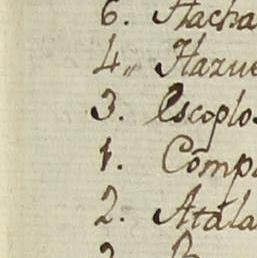 6. Hacha
4. Hazue
3. Escoplo
1. Compa
2. Atala